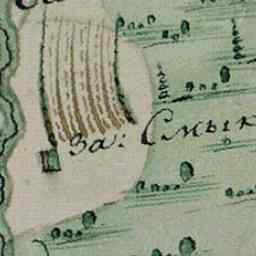 За: Смык